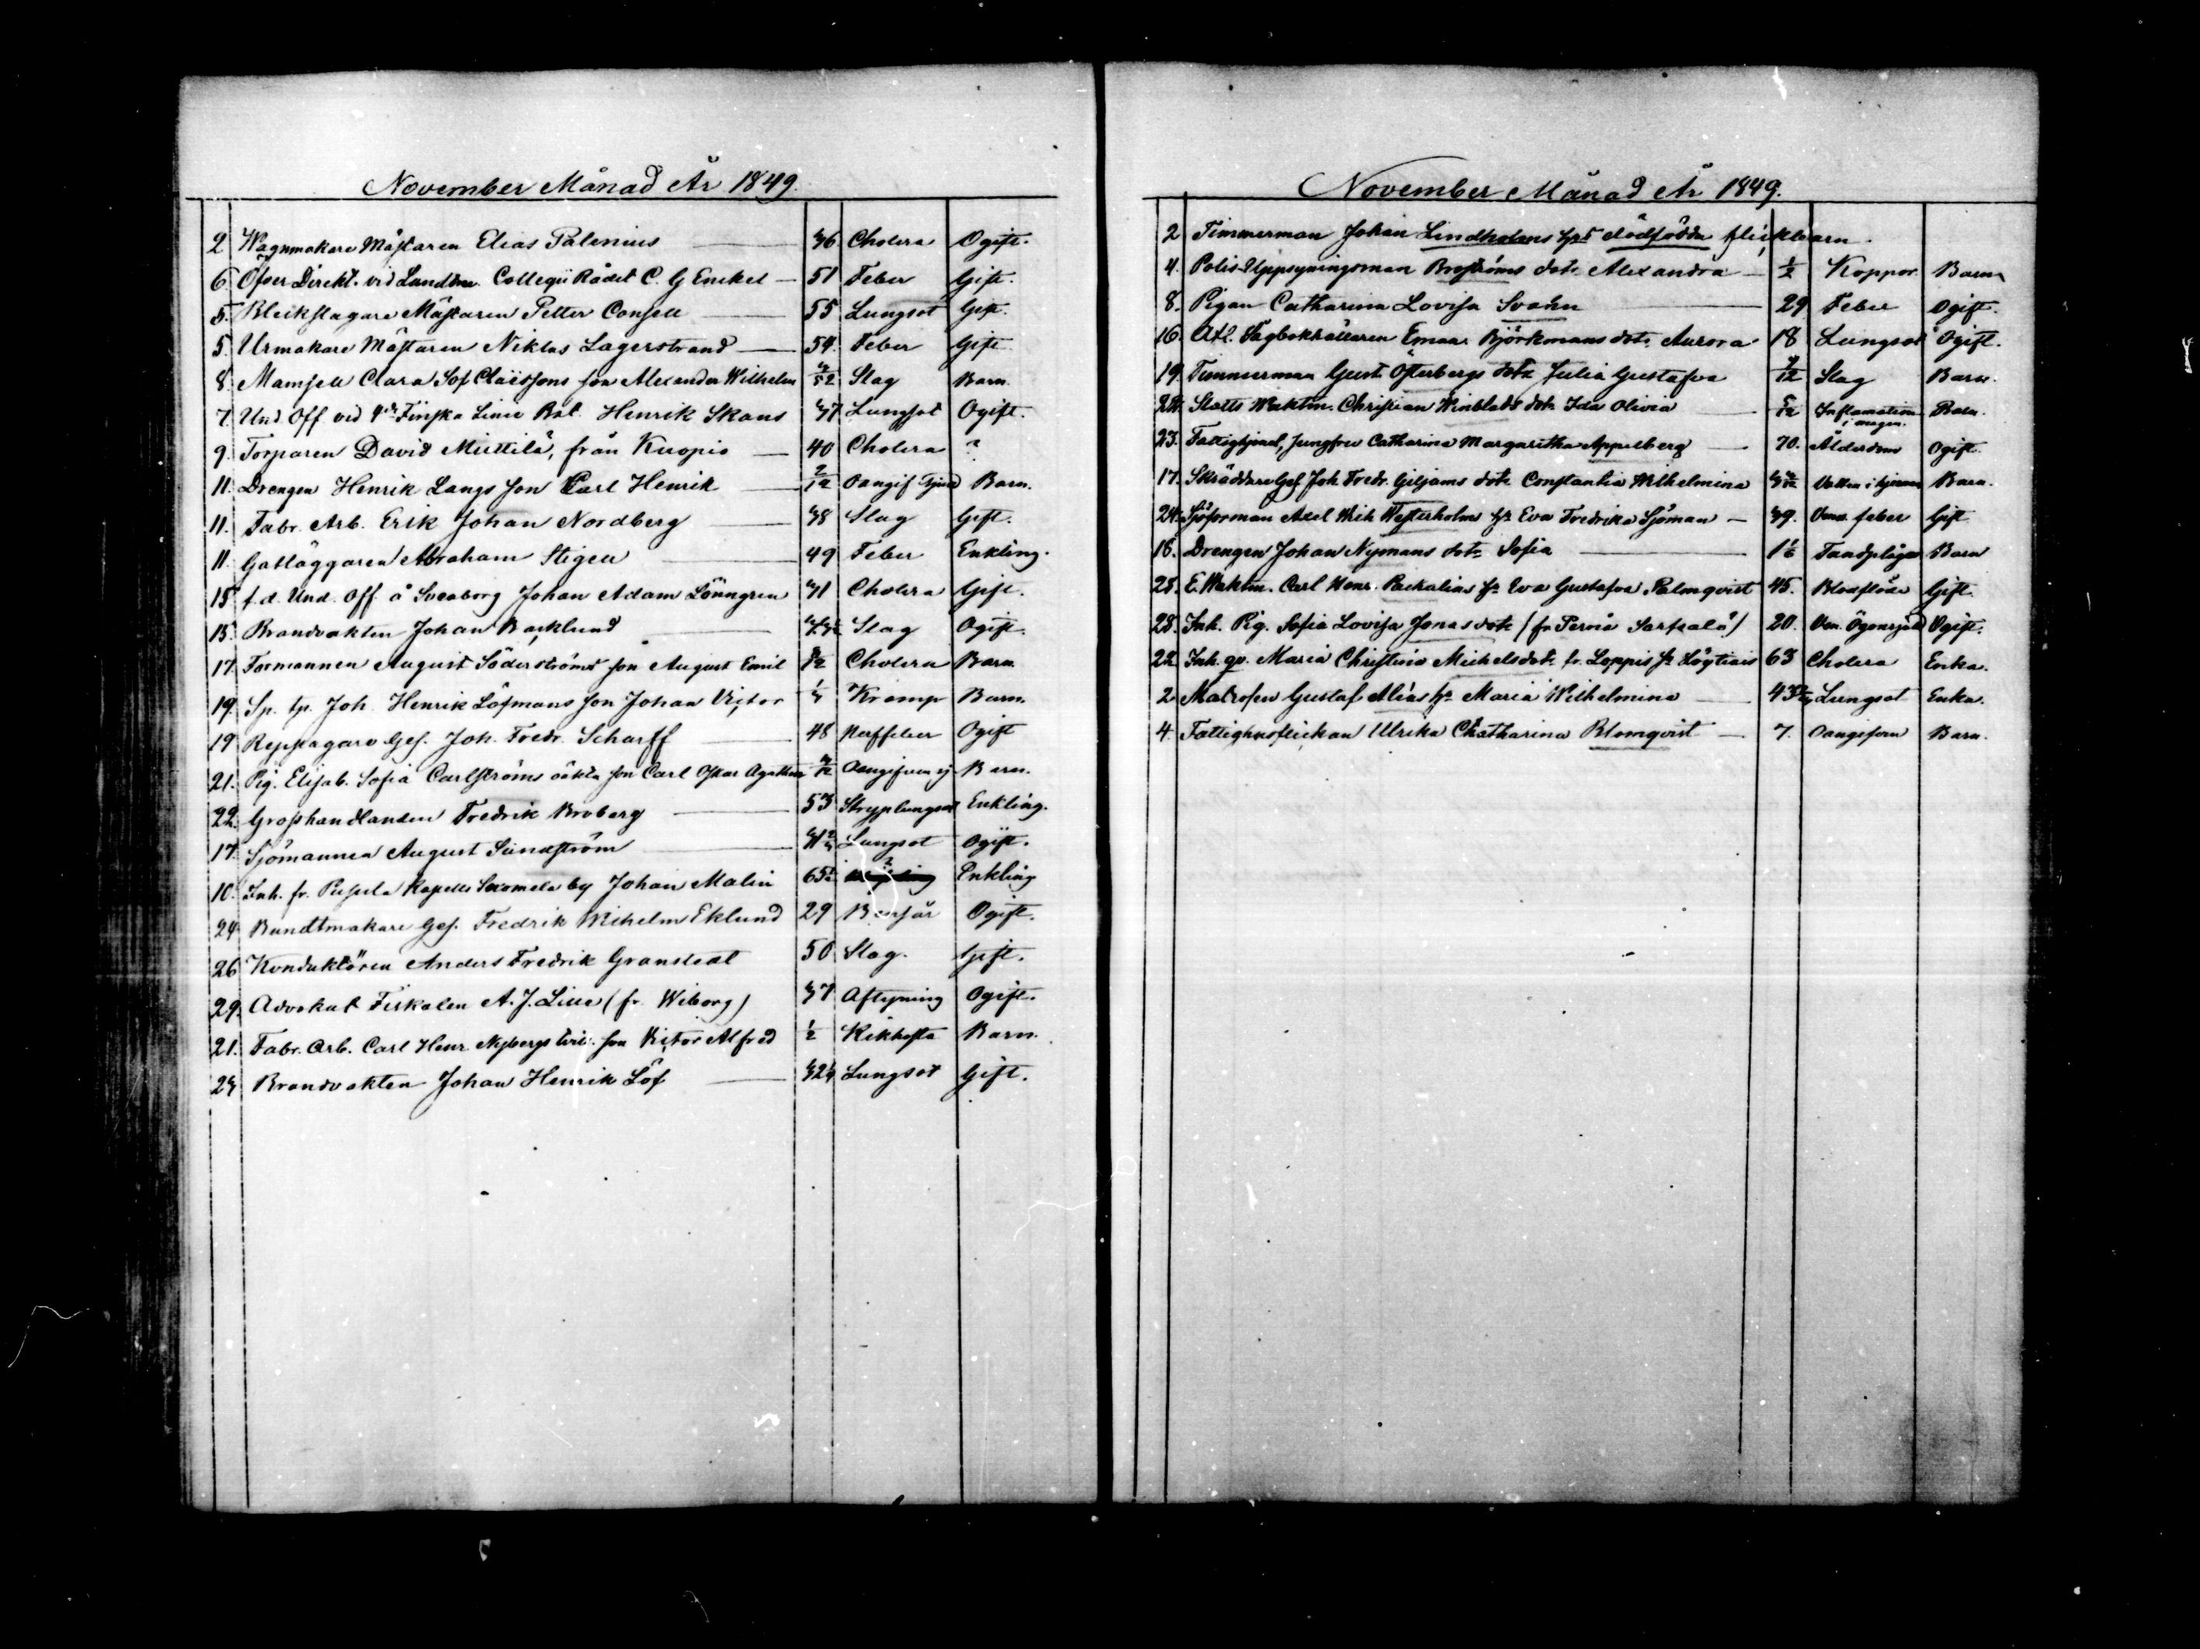 November Månad År 1849.
2 Wagnmakare Mästaren Elias Palenius 36 Cholera Ogift.
6. Öfver Direkt. vid Landtm. Collegii Rådet C. G Enckel 51 Feber Gift.
5. Bleckslagare Mästaren Petter Consell 55 Lungsot Gift.
5. Urmakare Mästaren Niklas Lagerstrand 54. Feber Gift
8. Mamsell Clara Sof Claëssons son Alexander Wilhelm 3/52 Slag Barn.
7. Und. Off vid Finska Linie Bat. Henrik Skans 37 Lungsot Ogift.
9. Torparen David Miettilä, från Kuopio 40 Cholera ?
11. Drengen Henrik Langs son Carl Henrik 2/12 Oangif Barn.
11. Fabr. Arb. Erik Johan Nordberg 38 Slag Gift.
11. Gatläggaren Abraham Stigell 49 Feber Enkling.
15 f.d. Und. Off. å Sveaborg Johan Adam Lönngren 31 Cholera Gift.
15. Brandvakten Johan Backlund Slag Ogift.
17. Formannen August Söderströms son August Emil Cholera Barn.
19. Sp. tp. Joh. Henrik Löfmans son Johan Victor Kramp Barn.
19 Reppagare Ges. Joh. Fredr. Scharff 48 Ogift
21. Pig. Elisab. Sofia Carlströms oäkta son Carl Oskar Agathon Oangifven sj. Barn.
22. Grosshandlanden Fredrik Broberg 53 Stryplungsot Enkling.
17. Sjömannen August Sundström Lungsot Ogift.
10. Inh. fr. Pusula Kapell by Johan Malin ? Enkling
24 Bundtmakare Ges. Fredrik Wilhelm Eklund 29 Bensår Ogift.
26 Konduktören Anders Fredrik Granstedt 50 Slag. Gift.
29. Advokat Fiskalen A. J. (fr. Wiborg) 37 Aftyning Ogift.
21. Fabr. Arb. Carl Henr. Nybergs son Victor Alfred 1/2 Kikhosta Barn.
23 Brandvakten Johan Henrik Löf Lungsot Gift.
November Månad År 1849.
2 Timmerman Johan Lindholms hus dödfödda flickbarn.
4. Polis-Uppsyningsman Broströms dotr Alexandra 1/2 Koppor Barn
8. Pigan Catharina Lovisa Svahn 29 Feber Ogift.
16. Dagbokhållaren Björkmans dotr Aurora 18 Lungsot Ogift.
19. Timmerman Gust. Österbergs dotr Julia Gustafva Slag Barn.
24. Slotts Waktm. Christian Winblads dotr Ida Olivia Inflamation i magen. Barn.
23. Fattighjonet, Jungfru Catharina Margaritha Appelberg 70. Ålderdom Ogift.
17. Skräddare Ges. Joh. Fredr. Giljams dotr Constantia Wilhelmina Vatten i hjernan Barn.
24. Axel Wilh Westerholms hu Eva Fredrika Sjöman 39. feber Gift
18. Drengen Johan Nymans dotr Sofia 1 1/6 Tandplågor Barn
25. E. Waktm. Carl Henr. hu Eva Gustafva Palmqvist 45. Blodflöde Gift.
28. Inh. Pig. Sofia Lovisa Jonasdotr (fr Pernå 20. Ogift.
22. Inh. qv. Maria Christina Michelsdotr fr. Loppis 63 Cholera Enka.
2 Matrosen Gustaf Aliás hu Maria Wilhelmina Lungsot Enka.
4. Fattighusflickan Ulrika Chatharina Blomqvist 7. Oangifven Barn.